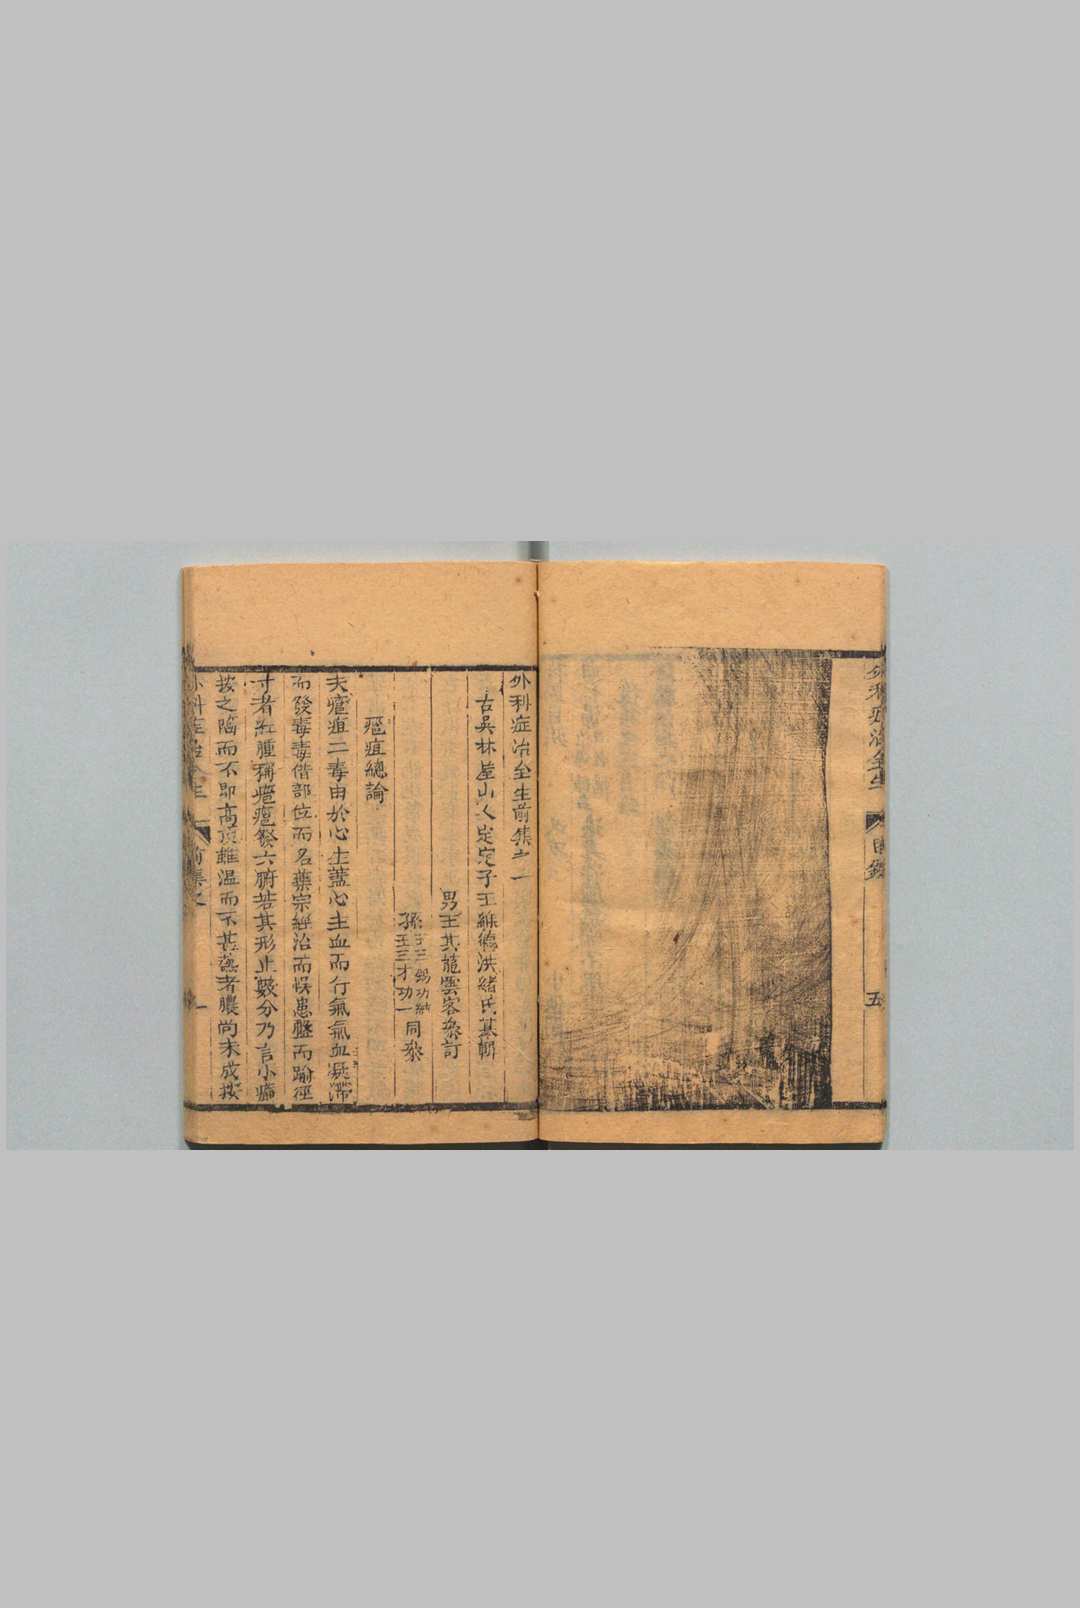 外科症治全生
目錄
五
外科症治全生前集之一
古吳林屋山人定定子王維德洪緒氏纂輯
男王其龍雲客叅訂
孫王三錫功
王三才功一
同叅
癰疽總論
夫癰疽二毒由於心生蓋心主血而行氣氣血凝滯
而發毒毒借部位而名藥宗經治而悞患盤而踰徑
寸者紅腫稱癰癰發六腑若其形止數分乃言小癤
按之陷而不即高頂雖溫而不甚熱者膿尚未成按
外科症治全生
前集之
一